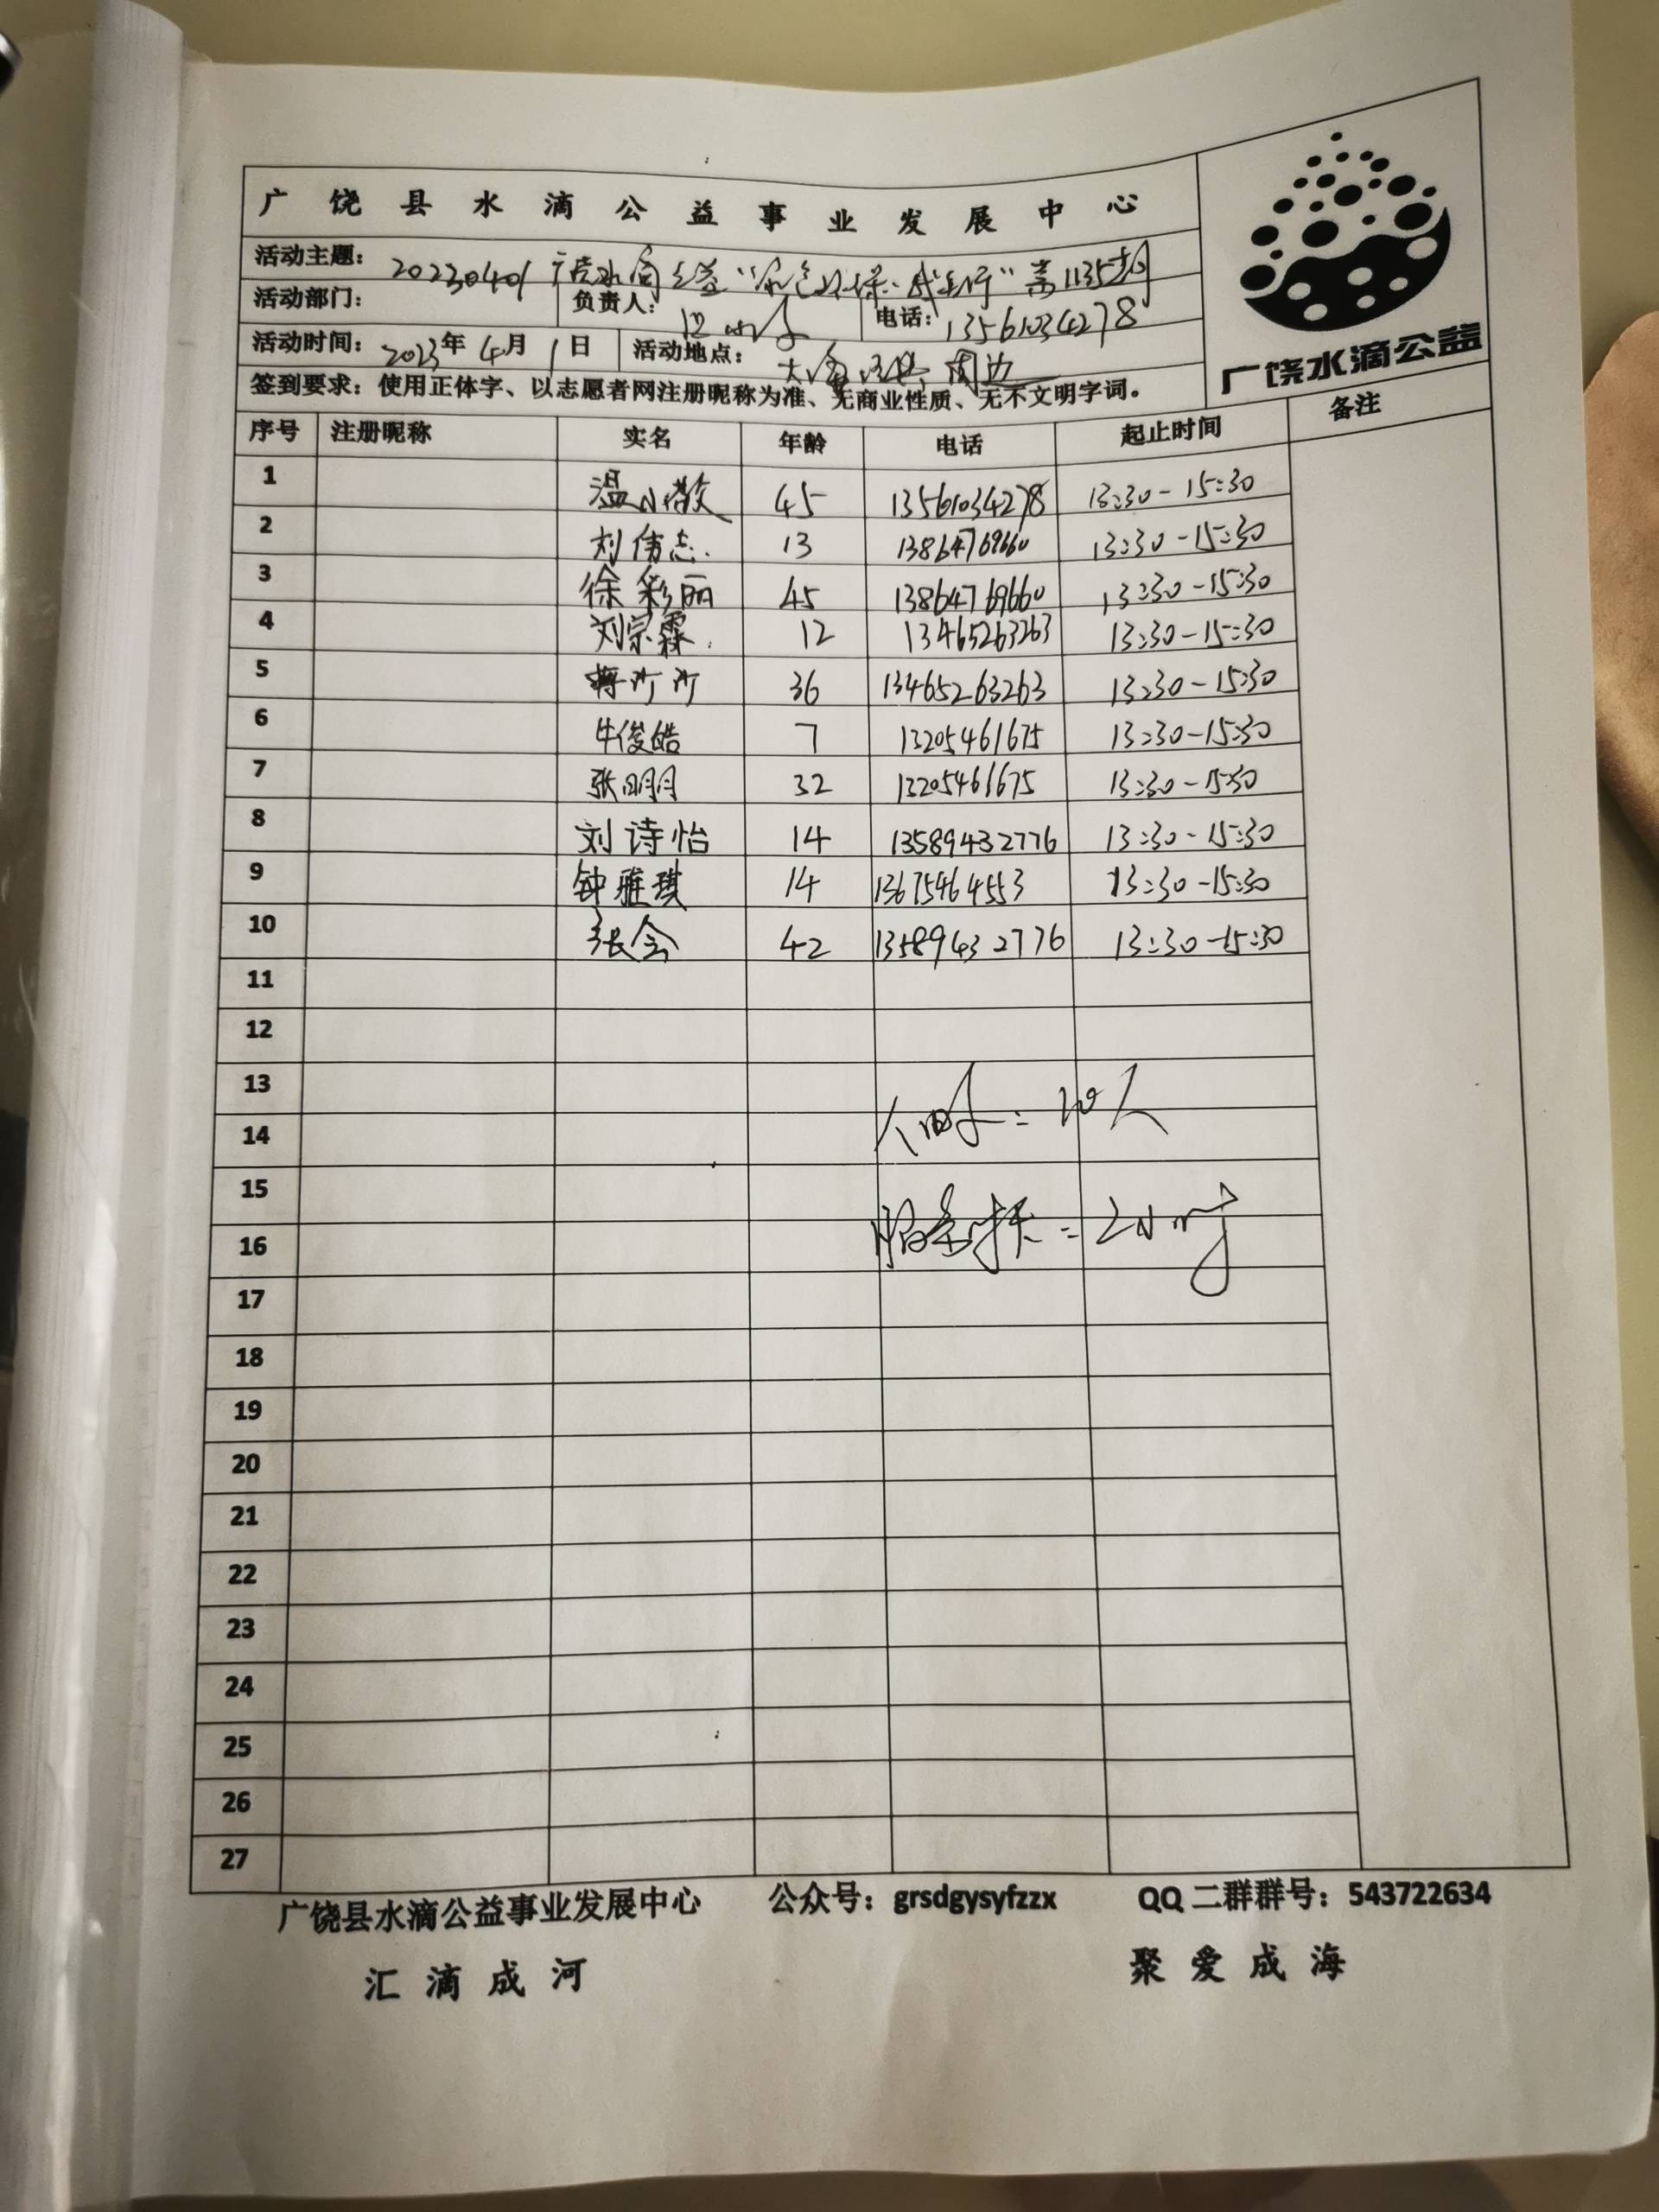 广饶县水滴公益事业发展中心
广饶水滴公益
活动主题：20230401 广饶水滴公益"绿色环保·我先行"第1135期
活动部门： 负责人： 电话：13561034278
活动时间：2023年4月1日 活动地点： 周边
签到要求：使用正体字、以志愿者网注册昵称为准、无商业性质、无不文明字词。
序号 注册昵称 实名 年龄 电话 起止时间 备注
1 温小散 45 13561034278 13:30-15:30
2 刘伟志 13 13864769660 13:30-15:30
3 徐彩丽 45 13864769660 13:30-15:30
4 刘宗霖 12 13465263263 13:30-15:30
5 蒋沙沙 36 13465263263 13:30-15:30
6 牛俊皓 7 13205461675 13:30-15:30
7 张明明 32 13205461675 13:30-15:30
8 刘诗怡 14 13589432776 13:30-15:30
9 钟雅琪 14 13675464553 13:30-15:30
10 张会 42 13589432776 13:30-15:30
11
12
13
14
15
16
17
18
19
20
21
22
23
24
25
26
27
广饶县水滴公益事业发展中心 公众号：grsdgysyfzzx QQ二群群号：543722634
汇滴成河 聚爱成海